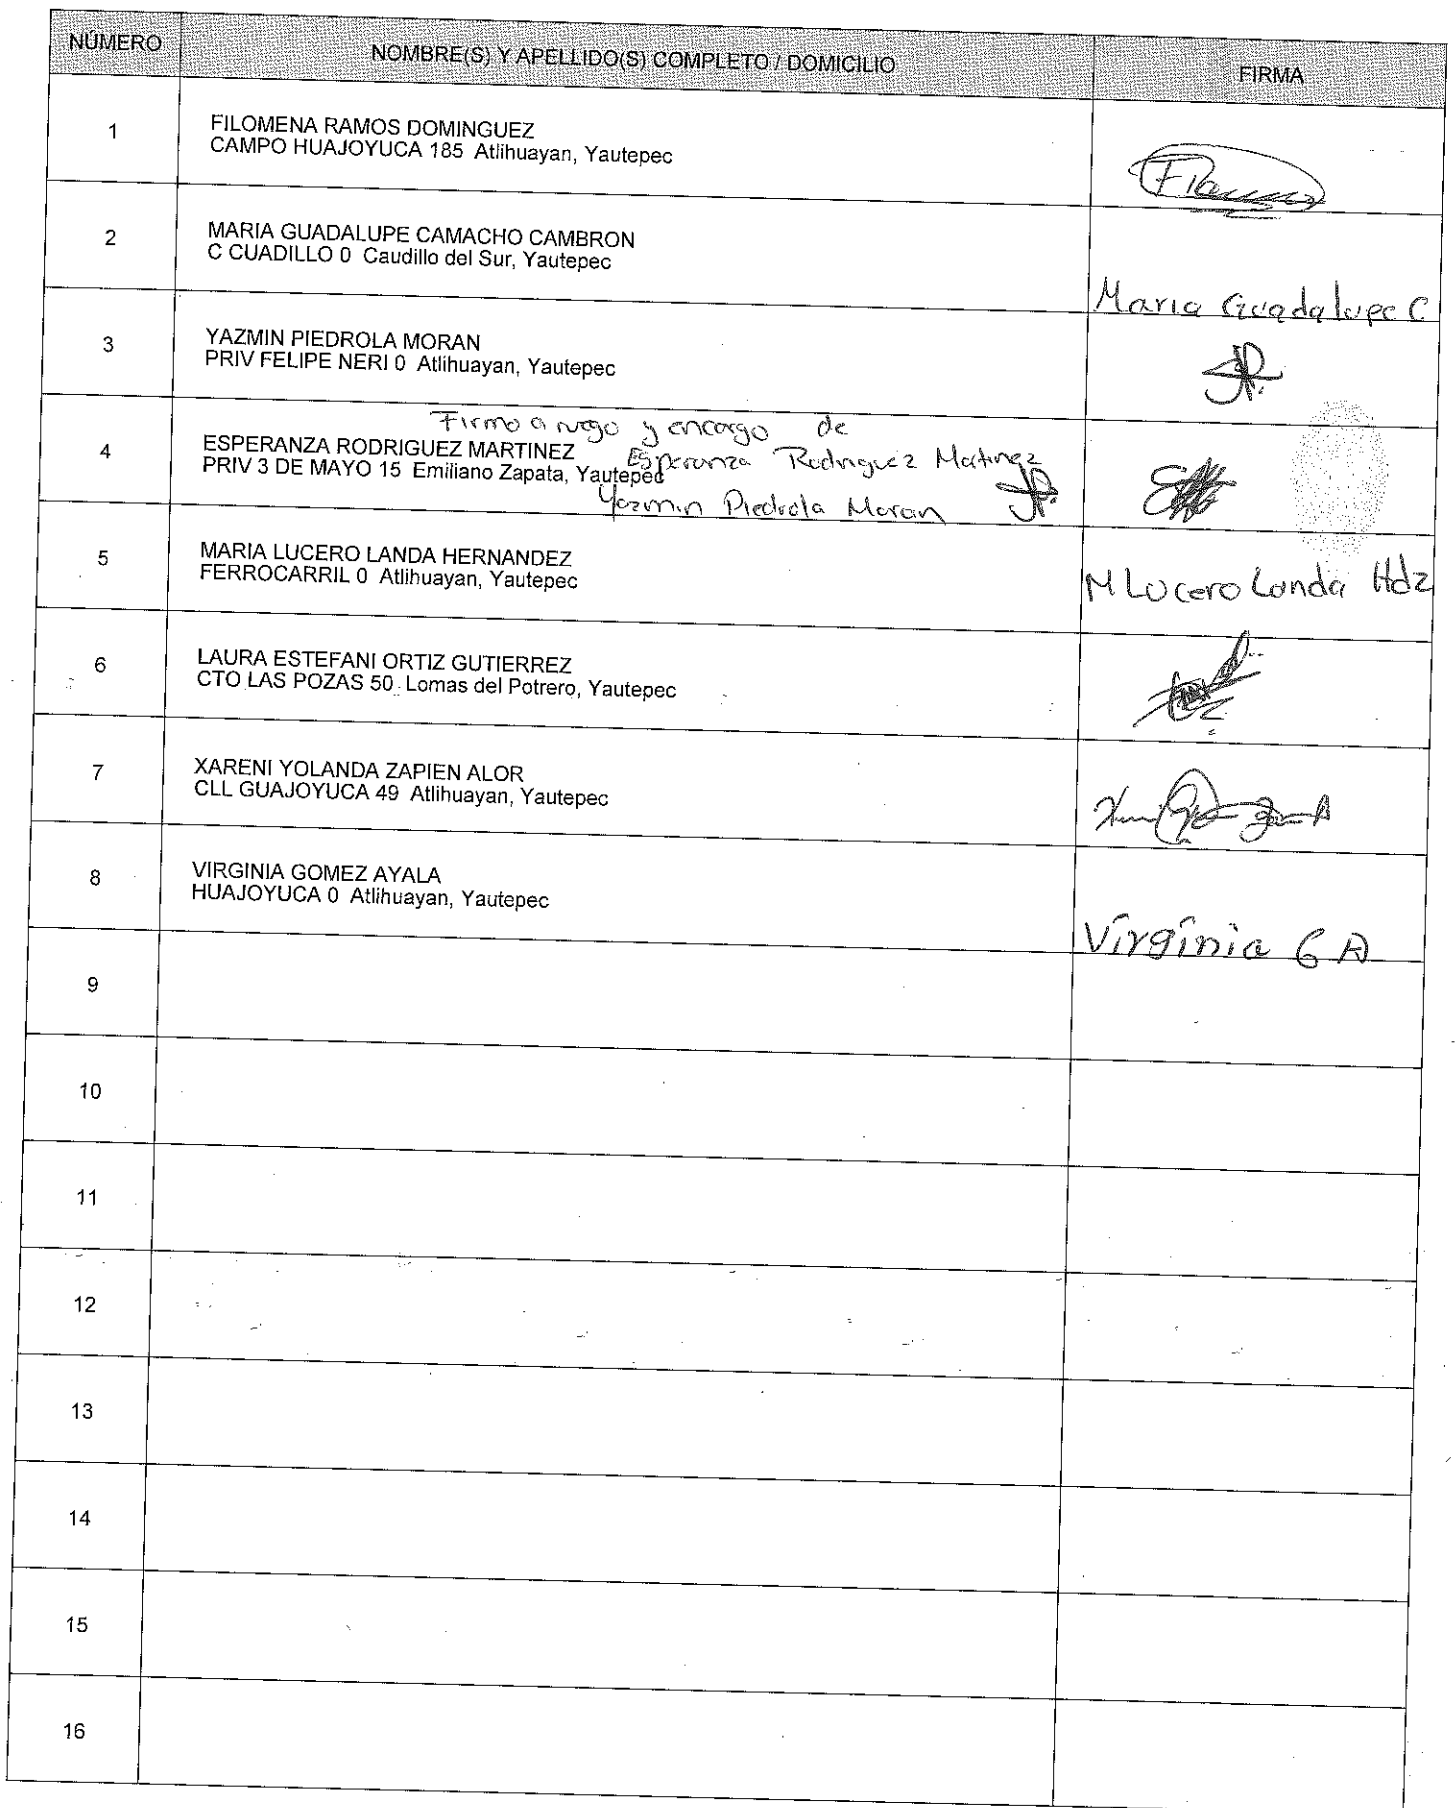 NÚMERO
NOMBRE(S) Y APELLIDO(S) COMPLETO / DOMICILIO
FIRMA
1
FILOMENA RAMOS DOMINGUEZ
CAMPO HUAJOYUCA 185 Atlihuayan, Yautepec
2
MARIA GUADALUPE CAMACHO CAMBRON
C CUADILLO 0 Caudillo del Sur, Yautepec
Maria Guadalupe C
3
YAZMIN PIEDROLA MORAN
PRIV FELIPE NERI 0 Atlihuayan, Yautepec
4
Firmo a ruego y encargo de
ESPERANZA RODRIGUEZ MARTINEZ
Esperanza Rodriguez Matinez
PRIV 3 DE MAYO 15 Emiliano Zapata, Yautepec
Yazmin Piedrola Moran
5
MARIA LUCERO LANDA HERNANDEZ
FERROCARRIL 0 Atlihuayan, Yautepec
M Lucero Landa Hdz
6
LAURA ESTEFANI ORTIZ GUTIERREZ
CTO LAS POZAS 50 Lomas del Potrero, Yautepec
7
XARENI YOLANDA ZAPIEN ALOR
CLL GUAJOYUCA 49 Atlihuayan, Yautepec
8
VIRGINIA GOMEZ AYALA
HUAJOYUCA 0 Atlihuayan, Yautepec
Virginia G A
9
10
11
12
13
14
15
16